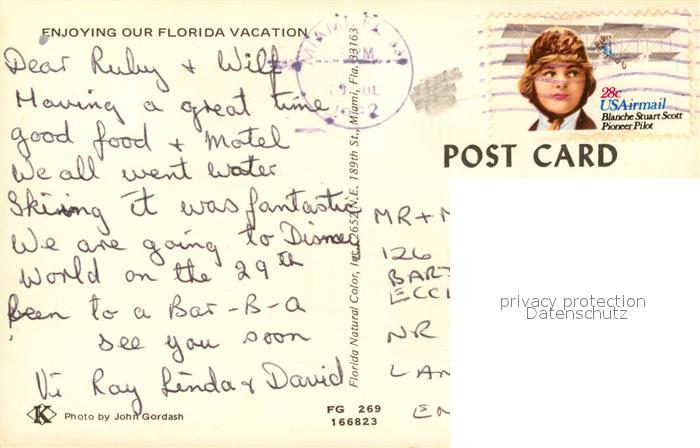 ENJOYING OUR FLORIDA VACATION
Dear Ruby + Wilf
Having a great time
good food + Motel
We all went water
Skiing it was fantastic
We are going to Disney
World on the 29th
been to a Bar-B-Q
see you soon
Vi Ray Linda + David
K
Photo by John Gordash
Florida Natural Color, Inc., 2652 N.E. 189th St., Miami, Fla. 33163
FG 269
166823
28c
USAirmail
Blanche Stuart Scott
Pioneer Pilot
POST CARD
MR + M
126
BART
ECCL
NR
LAN
EN
privacy protection
Datenschutz